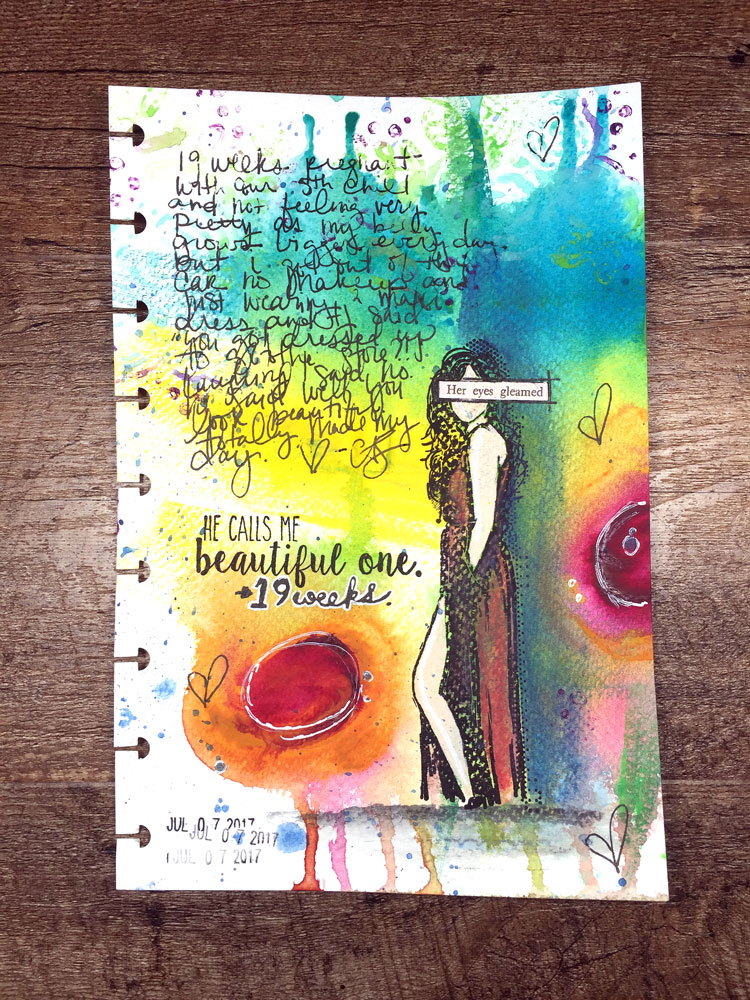 19 weeks pregnant
with our 5th child
and not feeling very
pretty as my belly
grows bigger every day.
but i got out of the
car no makeup and
just wearing a maxi
dress and said
"you got dressed up
to go to the store"
laughing I said no.
he said well you
look beautiful.
totally made my
day.
Her eyes gleamed
HE CALLS ME
beautiful one.
19 weeks.
JUL 07 2017
JUL 07 2017
JUL 07 2017